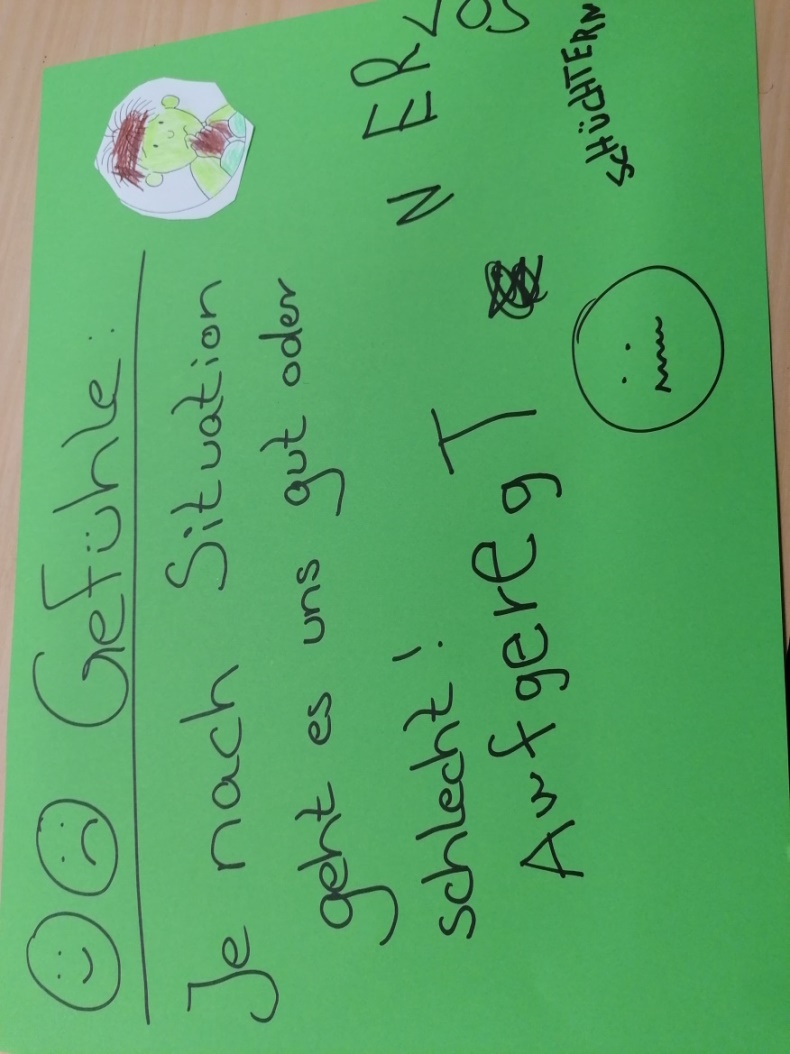 Gefühle:
Je nach Situation
geht es uns gut oder
schlecht!
AufgeregT
SCHÜCHTERN